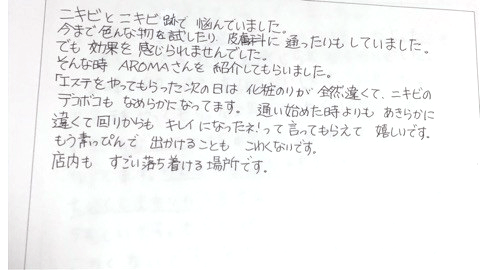 ニキビとニキビ跡で悩んでいました。
今まで色んな物を試したり、皮膚科に通ったりもしていました。
でも効果を感じられませんでした。
そんな時AROMAさんを紹介してもらいました。
「エステをやってもらった次の日は化粧のりが全然違くて、ニキビの
デコボコもなめらかになってます。通い始めた時よりもあきらかに
違くて回りからもキレイになったネ!って言ってもらえて嬉しいです。
もう素っぴんで出かけることもこわくないです。
店内もすごい落ち着ける場所です。